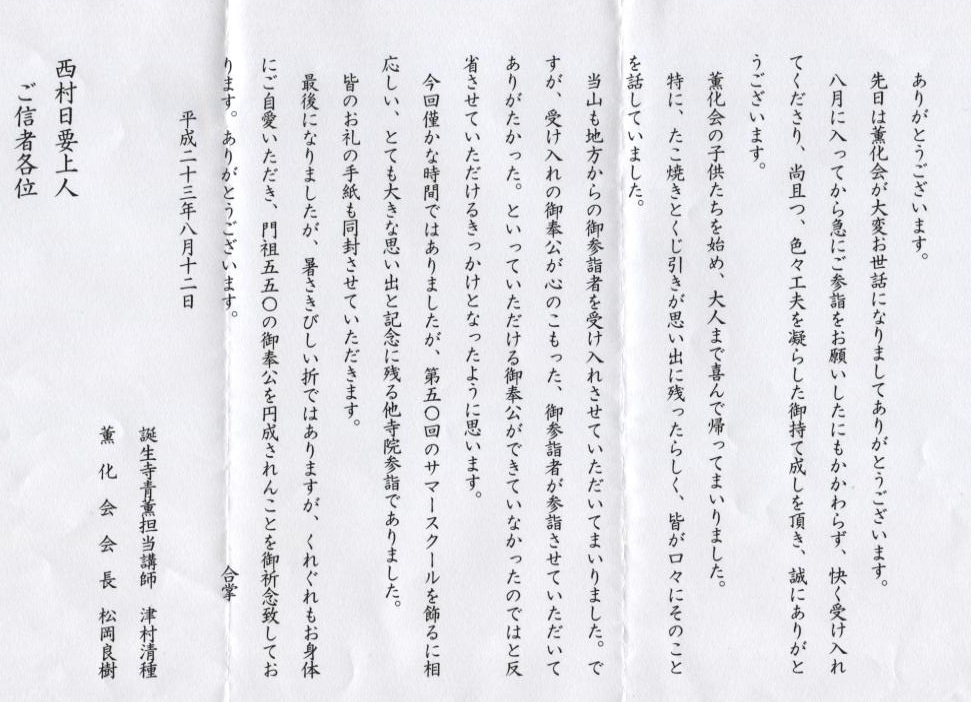 ありがとうございます。
先日は薫化会が大変お世話になりましてありがとうございます。
八月に入ってから急にご参詣をお願いしたにもかかわらず、快く受け入れ
てくださり、尚且つ、色々工夫を凝らした御持て成しを頂き、誠にありがと
うございます。
薫化会の子供たちを始め、大人まで喜んで帰ってまいりました。
特に、たこ焼きとくじ引きが思い出に残ったらしく、皆が口々にそのこと
を話していました。
当山も地方からの御参詣者を受け入れさせていただいてまいりました。で
すが、受け入れの御奉公が心のこもった、御参詣者が参詣させていただいて
ありがたかった。といっていただける御奉公ができていなかったのではと反
省させていただけるきっかけとなったように思います。
今回僅かな時間ではありましたが、第五〇回のサマースクールを飾るに相
応しい、とても大きな思い出と記念に残る他寺院参詣でありました。
皆のお礼の手紙も同封させていただきます。
最後になりましたが、暑さきびしい折ではありますが、くれぐれもお身体
にご自愛いただき、門祖五五〇の御奉公を円成されんことを御祈念致してお
ります。ありがとうございます。 合掌
平成二十三年八月十二日
誕生寺青薫担当講師 津村清種
薫化会会長 松岡良樹
西村日要上人
ご信者各位